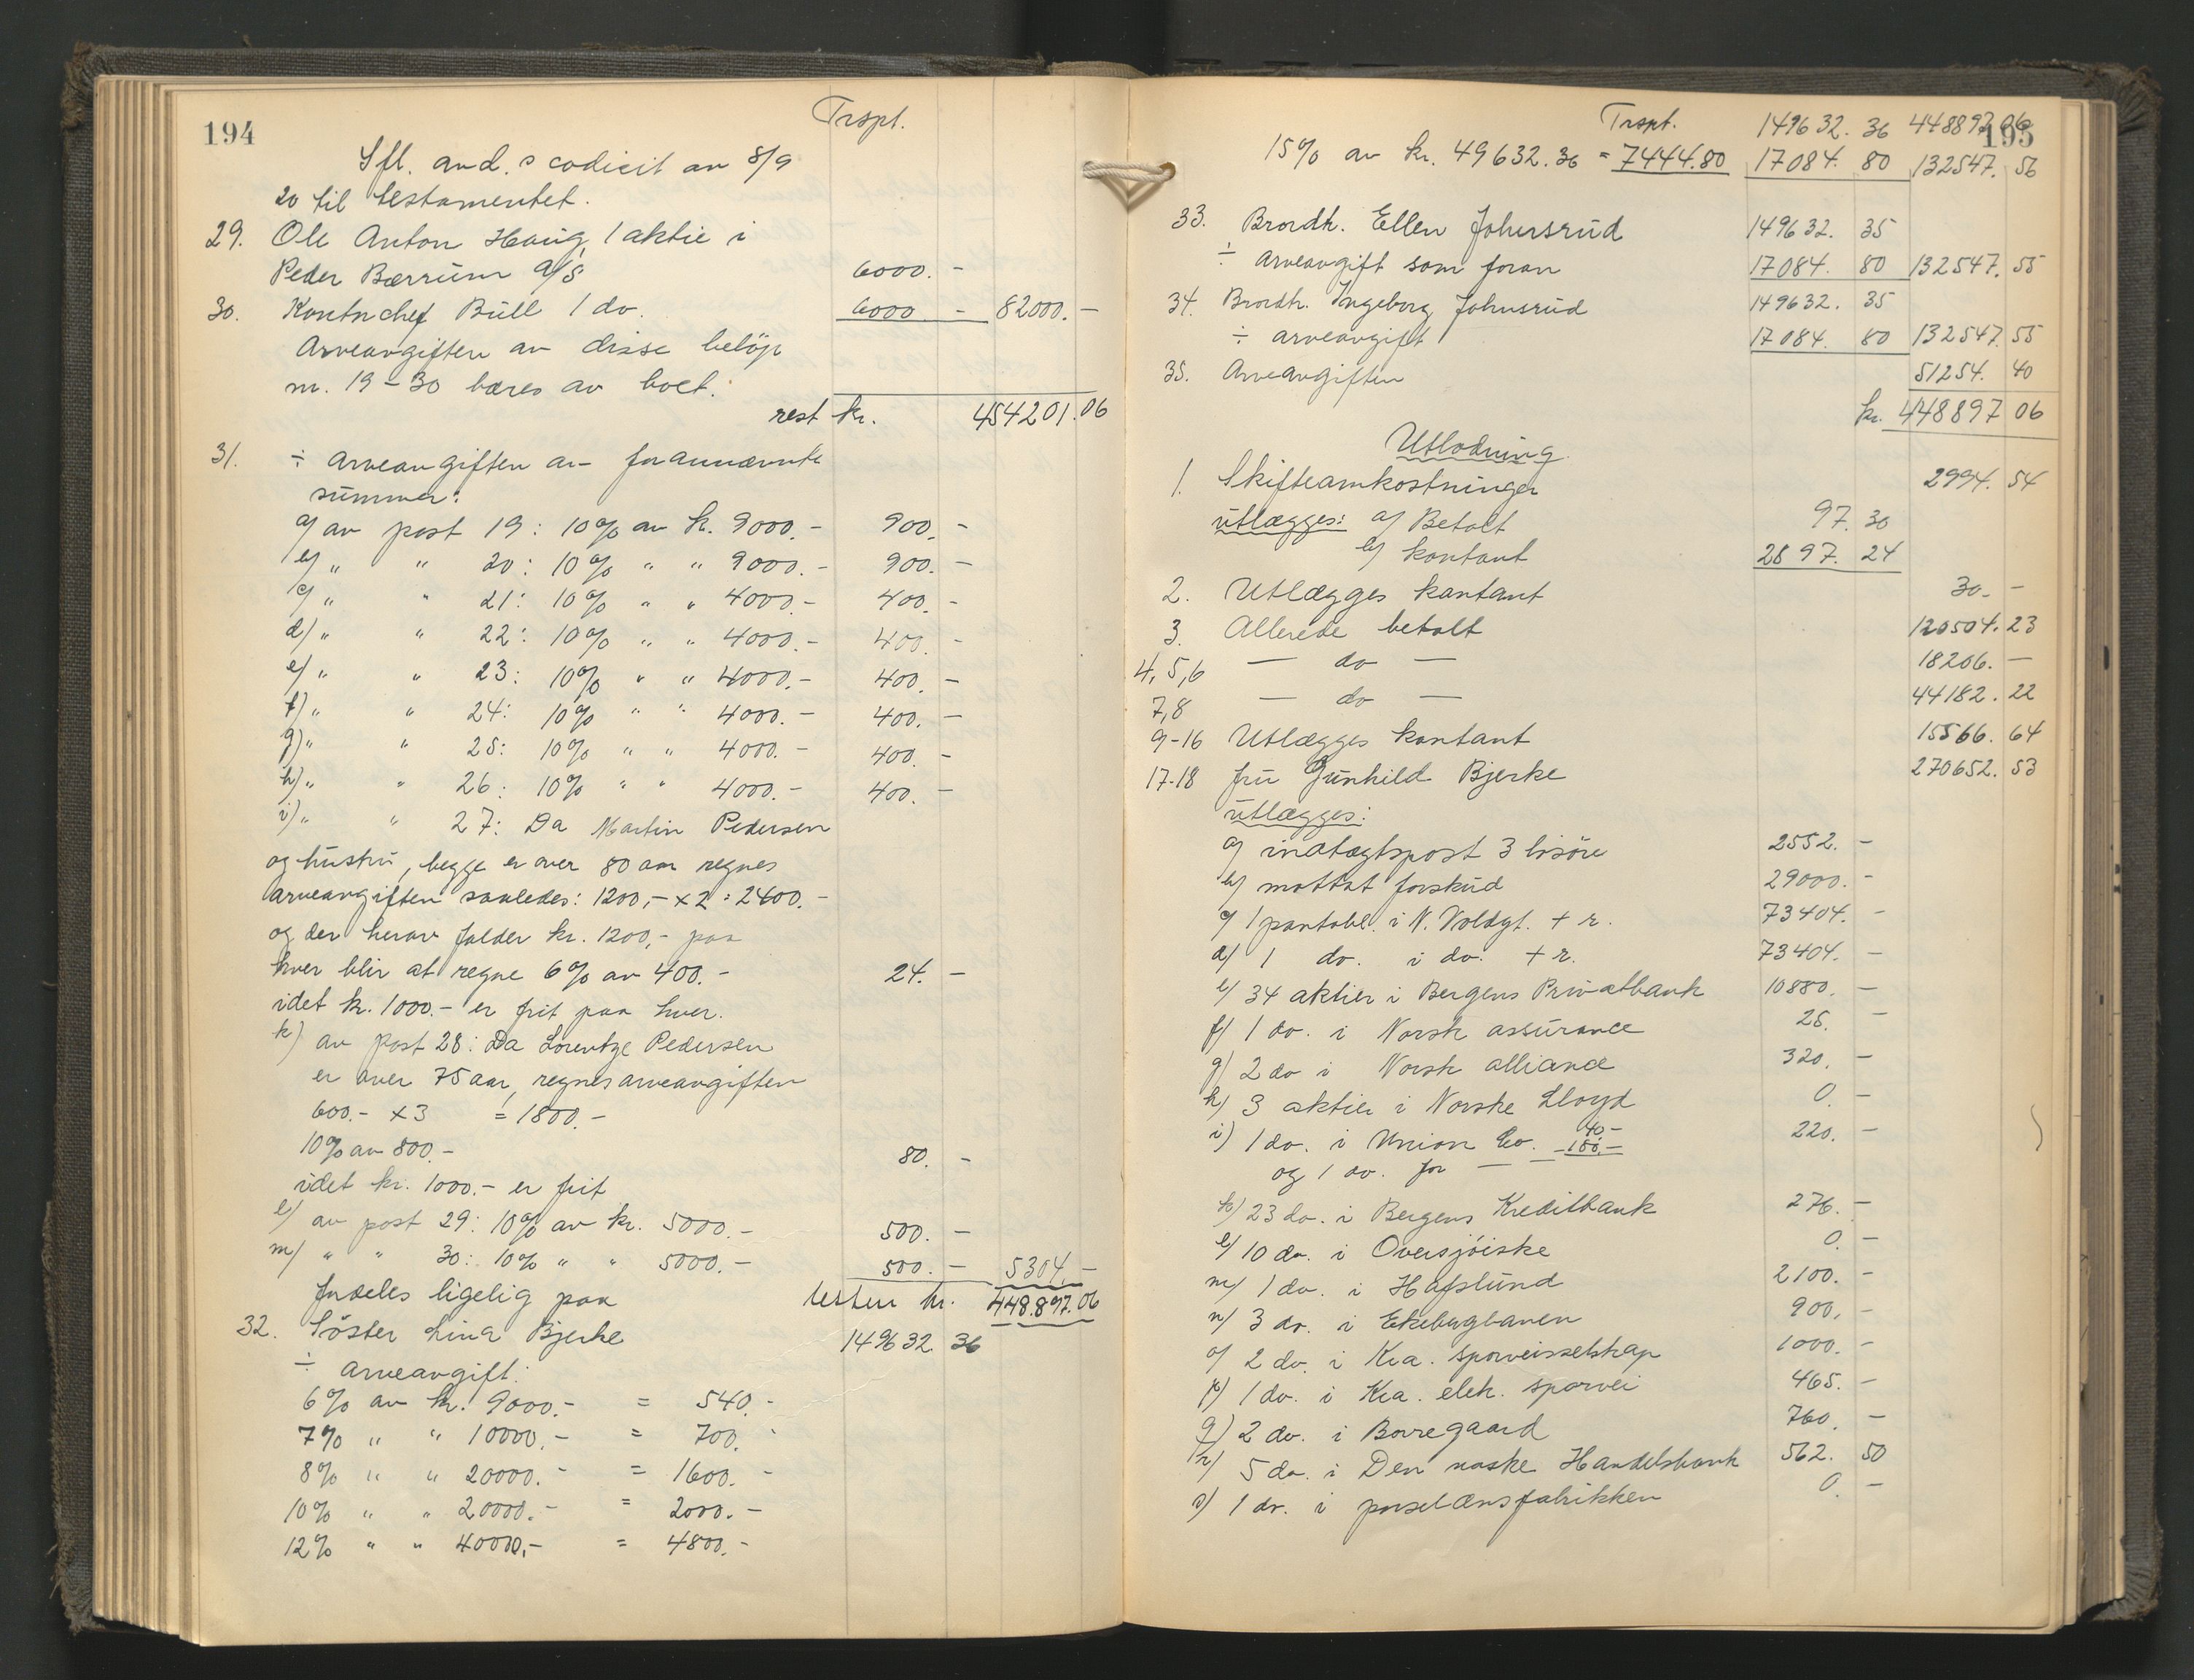 194
Trspt.
Ifl. and. s codicil av 8/9
20 til testamentet.
29. Ole Anton Haug, 1 aktie i
Peder Bærrum A/S 6000. -
30. Kontnchef Bull 1 do. 6000 - 82000. -
Arveavgiften av disse beløp
nr. 19-30 bæres av boet.
rest kr. 454201.06
31. ÷ arveavgiften av forannævnte
summer:
a) av post 19: 10% av kr. 9000.- 900. -
b) " " 20: 10% " " 9000.- 900. -
c) " " 21: 10% " " 4000.- 400. -
d) " " 22: 10% " " 4000.- 400. -
e) " " 23: 10% " " 4000.- 400. -
f) " " 24: 10% " " 4000.- 400. -
g) " " 25: 10% " " 4000.- 400. -
h) " " 26: 10% " " 4000.- 400. -
i) " " 27: Da Martin Pedersen
og hustru, begge er over 80 aar regnes
arveavgiften saaledes: 1200,- x 2 = 2400.-
og der herav falder kr. 1200,- paa
hver blir at regne 6% av 400.- 24. -
idet kr. 1000.- er frit paa hver.
k) av post 28: Da Lorentze Pedersen
er over 75 aar, regnes arveavgiften
600.- x 3 = 1800.-
10% av 800.- 80. -
idet kr. 1000.- er frit
l) av post 29: 10% av kr. 5000.- 500. -
m) " " 30: 10% " " 5000.- 500. - 5304. -
Resten kr. 448.897.06
fordeles ligelig paa
32. Söster Lina Bjerke 149632 36
÷ arveavgift:
6% av kr. 9000.- = 540.-
7% " " 10000.- = 700.-
8% " " 20000.- = 1600.-
10% " " 20000.- = 2000.-
12% " " 40000.- = 4800.-
195
Trspt. 149632. 36 448897 06
15% av kr. 49632.36 = 7444.80 17084. 80 132547. 56
33. Brordtr. Ellen Johnsrud 149632. 35
÷ arveavgift som foran 17084. 80 132547. 55
34. Brordtr. Ingeborg Johnsrud 149632. 35
÷ arveavgift 17084. 80 132547. 55
35. Arveavgiften 51254. 40
kr. 448897 06
Utlodning
1. Skifteomkostninger 2994. 54
utlægges: a) Betalt 97. 30
b) kontant 2897. 24
2. Utlægges kontant 30. -
3. Allerede betalt 120504. 23
4, 5, 6 — do — 18206. -
7, 8 — do — 44182. 22
9-16 Utlægges kontant 15566. 64
17-18 fru Gunhild Bjerke 270652. 53
utlægges:
a) indtægtspost 3 lösöre 2552. -
b) mottat forskud 29000. -
c) 1 pantobl. i N. Voldgt. + r. 73404. -
d) 1 do. i do. + r. 73404. -
e) 34 aktier i Bergens Privatbank 10880. -
f) 1 do. i Norsk assurance 25. -
g) 2 do i Norsk alliance 320. -
h) 3 aktier i Norske Lloyd 0. -
i) 1 do. i Union Co. 40- 220. -
og 1 do. for — — 180.-
k) 23 do. i Bergens Kreditbank 276. -
l) 10 do. i Oversjöiske 0. -
m) 1 do. i Hafslund 2100. -
n) 3 do. i Ekebergbanen 900. -
o) 2 do. i Kra. sporveisselskap 1000. -
p) 1 do. i Kra. elek. sporvei 465. -
q) 2 do. i Borregaard 760. -
r) 5 do. i Den norske Handelsbank 562. 50
s) 1 do. i porselænsfabrikken 0. -